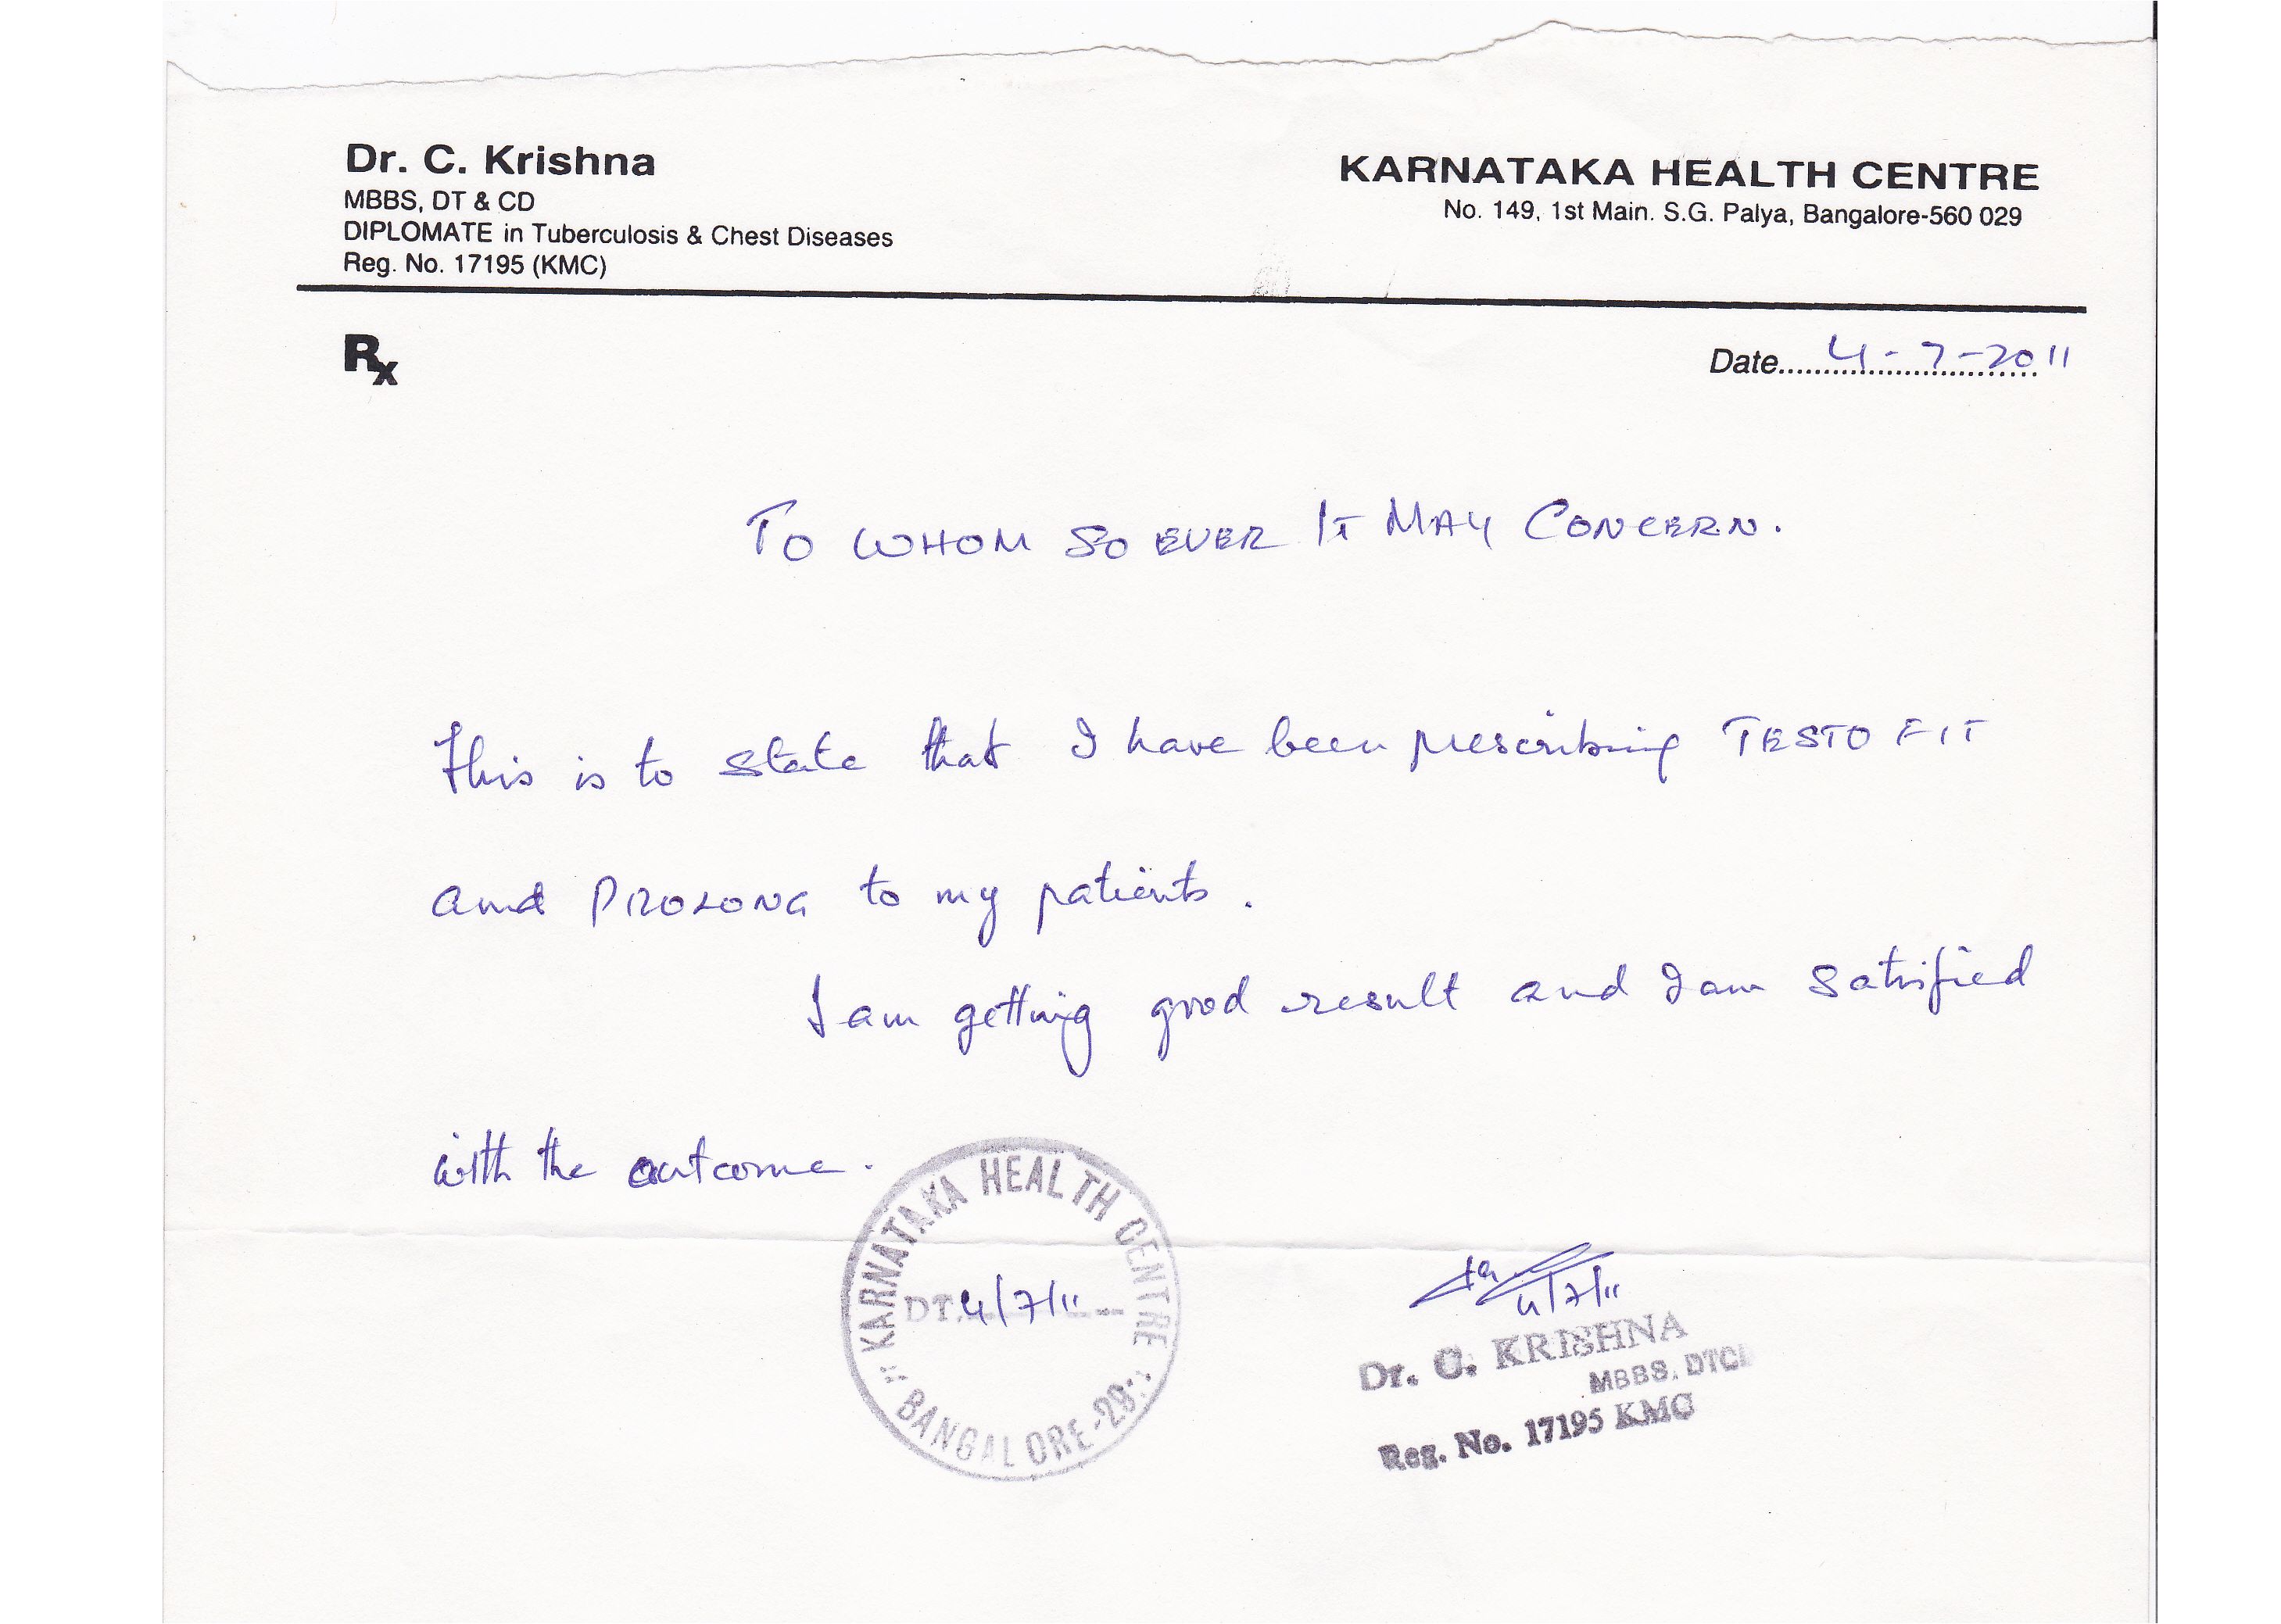 Dr. C. Krishna
MBBS, DT & CD
DIPLOMATE in Tuberculosis & Chest Diseases
Reg. No. 17195 (KMC)
KARNATAKA HEALTH CENTRE
No. 149, 1st Main. S.G. Palya, Bangalore-560 029
Rx
Date 4-7-2011
TO WHOM SO EVER IT MAY CONCERN.
This is to state that I have been prescribing TESTO FIT
and PROLONG to my patients.
I am getting good result and I am satisfied
with the outcome.
KARNATAKA HEALTH CENTRE
DT. 4/7/11
BANGALORE-29
4/7/11
Dr. C. KRISHNA
MBBS, DTCD
Reg. No. 17195 KMC